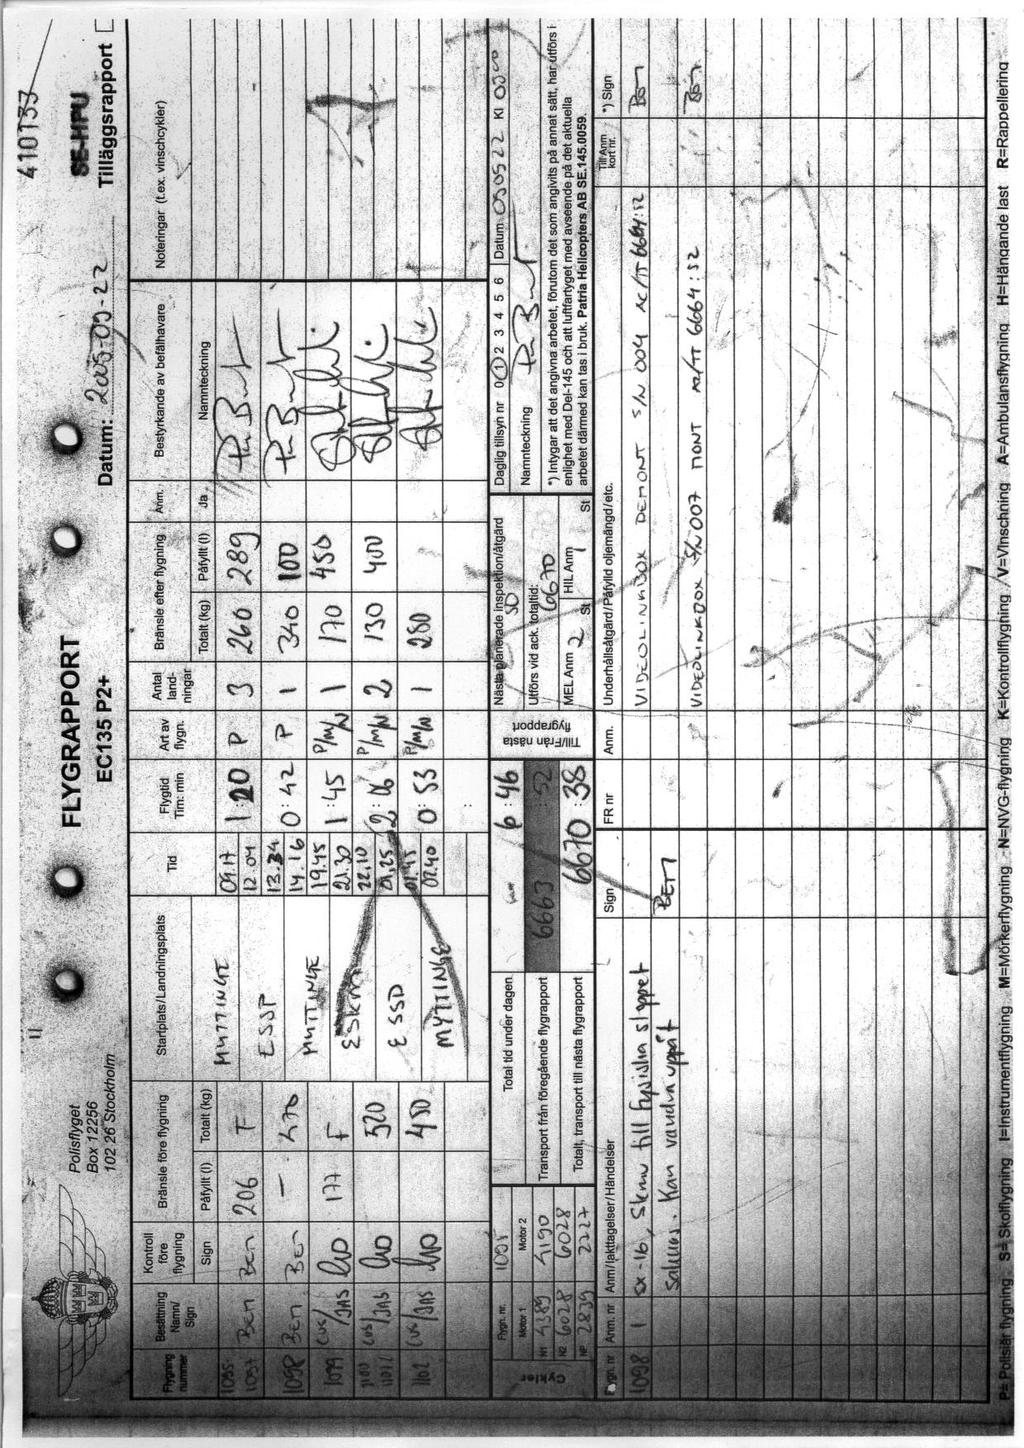 410133
Polisflyget
Box 12256
102 26 Stockholm
FLYGRAPPORT
EC135 P2+
Datum: 2005-09-22
SE-HPU
Tilläggsrapport
Flygning nummer
Besättning Namn/ Sign
Kontroll före flygning
Sign
Bränsle före flygning
Påfyllt (l)
Totalt (kg)
Startplats/Landningsplats
Tid
Flygtid Tim: min
Art av flygn.
Antal land- ningar
Bränsle efter flygning
Totalt (kg)
Påfyllt (l)
Anm.
Ja
Bestyrkande av befälhavare
Namnteckning
Noteringar (t.ex. vinschcykler)
1095- 1097 Ben Ben 206 F MYTTINGE 09.17 12.04 1:20 P 3 260 289
1098 Ben Ben - 470 ESSP 13.34 14.16 0:42 P 1 340 100
1099 CVS/JAS 177 F MYTTINGE 19.45 21.30 1:45 P/M/N 1 170 450
CVS/JAS 520 ESKM 22.10 2:06 P/M/N 2 130 400
1102 CVS/JAS 450 ESSD 01.45 02.40 0:53 P/M/N 1 280
MYTTINGE
Cykler
Flygn. nr. 1095
Motor 1
Motor 2
N1 4389 4190
N2 6028 6028
NP 2839 2227
Total tid under dagen 6:46
Transport från föregående flygrapport 6663:52
Totalt, transport till nästa flygrapport 6670:38
Till/Från nästa flygrapport
Nästa planerade inspektion/åtgärd
50
Utförs vid ack. totaltid: 6670
MEL Anm 2 St
HIL Anm 1 St
Daglig tillsyn nr 0 1 2 3 4 5 6
Datum 050522 Kl 0500
Namnteckning
*) Intygar att det angivna arbetet, förutom det som angivits på annat sätt, har utförs i
enlighet med Del-145 och att luftfartyget med avseende på det aktuella
arbetet därmed kan tas i bruk. Patria Helicopters AB SE.145.0059.
Flygn. nr
Anm. nr
Anm/Iakttagelser/Händelser
Sign
FR nr
Anm.
Underhållsåtgärd/Påfylld oljemängd/etc.
Till Anm kort nr.
*) Sign
1098 1 SX-16, Skruv till fysiska släppet
saknas. Kan vandra uppåt
Ben
VIDEOLINKBOX DEMONT S/N 004 AC/TT 6664:52
VIDEOLINKBOX S/N 007 MONT AC/TT 6664:52
P=Polisiär flygning S=Skolflygning I=Instrumentflygning M=Mörkerflygning N=NVG-flygning K=Kontrollflygning V=Vinschning A=Ambulansflygning H=Hängande last R=Rappellering